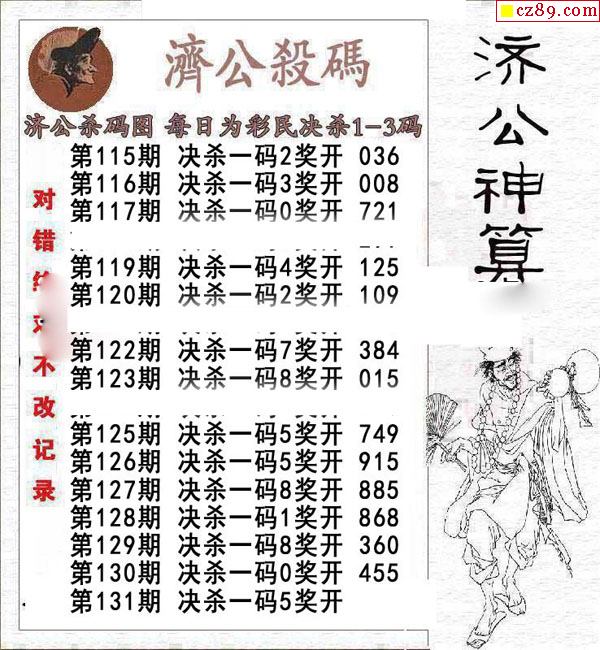 cz89.com
濟公殺碼
济公杀码图 每日为彩民决杀1-3码
第115期 决杀一码2奖开 036
第116期 决杀一码3奖开 008
第117期 决杀一码0奖开 721
第119期 决杀一码4奖开 125
第120期 决杀一码2奖开 109
第122期 决杀一码7奖开 384
第123期 决杀一码8奖开 015
第125期 决杀一码5奖开 749
第126期 决杀一码5奖开 915
第127期 决杀一码8奖开 885
第128期 决杀一码1奖开 868
第129期 决杀一码8奖开 360
第130期 决杀一码0奖开 455
第131期 决杀一码5奖开
对错
不改记录
济公神算